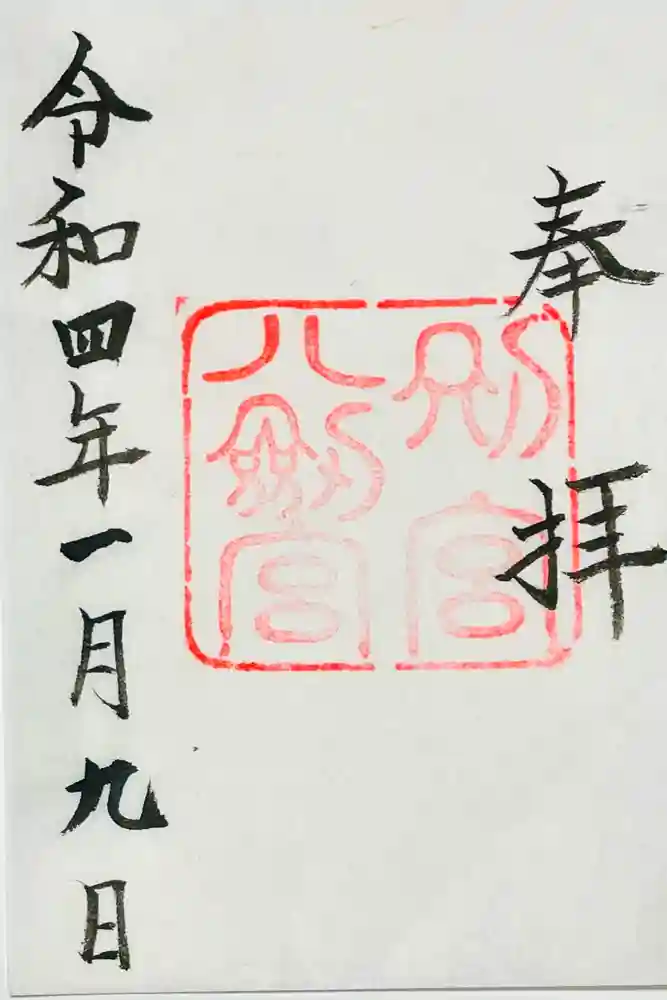 奉拝
別宮
八剣宮
令和四年一月九日